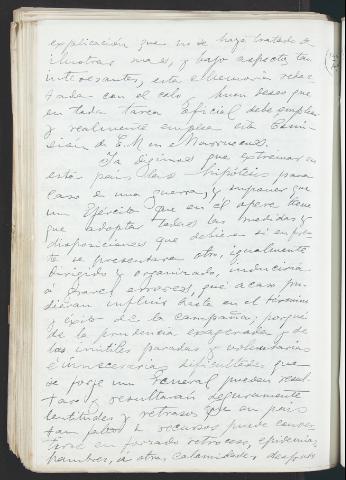 explicación que no se haya tratado de
ilustrar mas, y bajo aspectos tan
interesantes, esta memoria redac
tada con el celo y buen deseo que
en toda tarea oficial debe emplear
y realmente emplea esta Comi
sion de E.M. en Marruecos.
Ya digimos que extremar en
estos paises las hipótesis para
caso de una guerra, y suponer que
un Ejército que en el opere tiene
que adoptar todas las medidas y
disposiciones que debiera si enfren
te se presentara otro, igualmente
dirigido y organizado, induciria
á graves errores, que acaso pu
dieran influir hasta en el término
y éxito de la campaña; porque
de la prudencia exagerada y de
las inutiles paradas y voluntarias
é innecesarias dificultades que
se forje un General pueden resul
tar y resultarán seguramente
lentitudes y retrasos que en pais
tan falto de recursos puede conver
tirse en forzado retroceso, epidemias,
hambres, ú otras calamidades despues